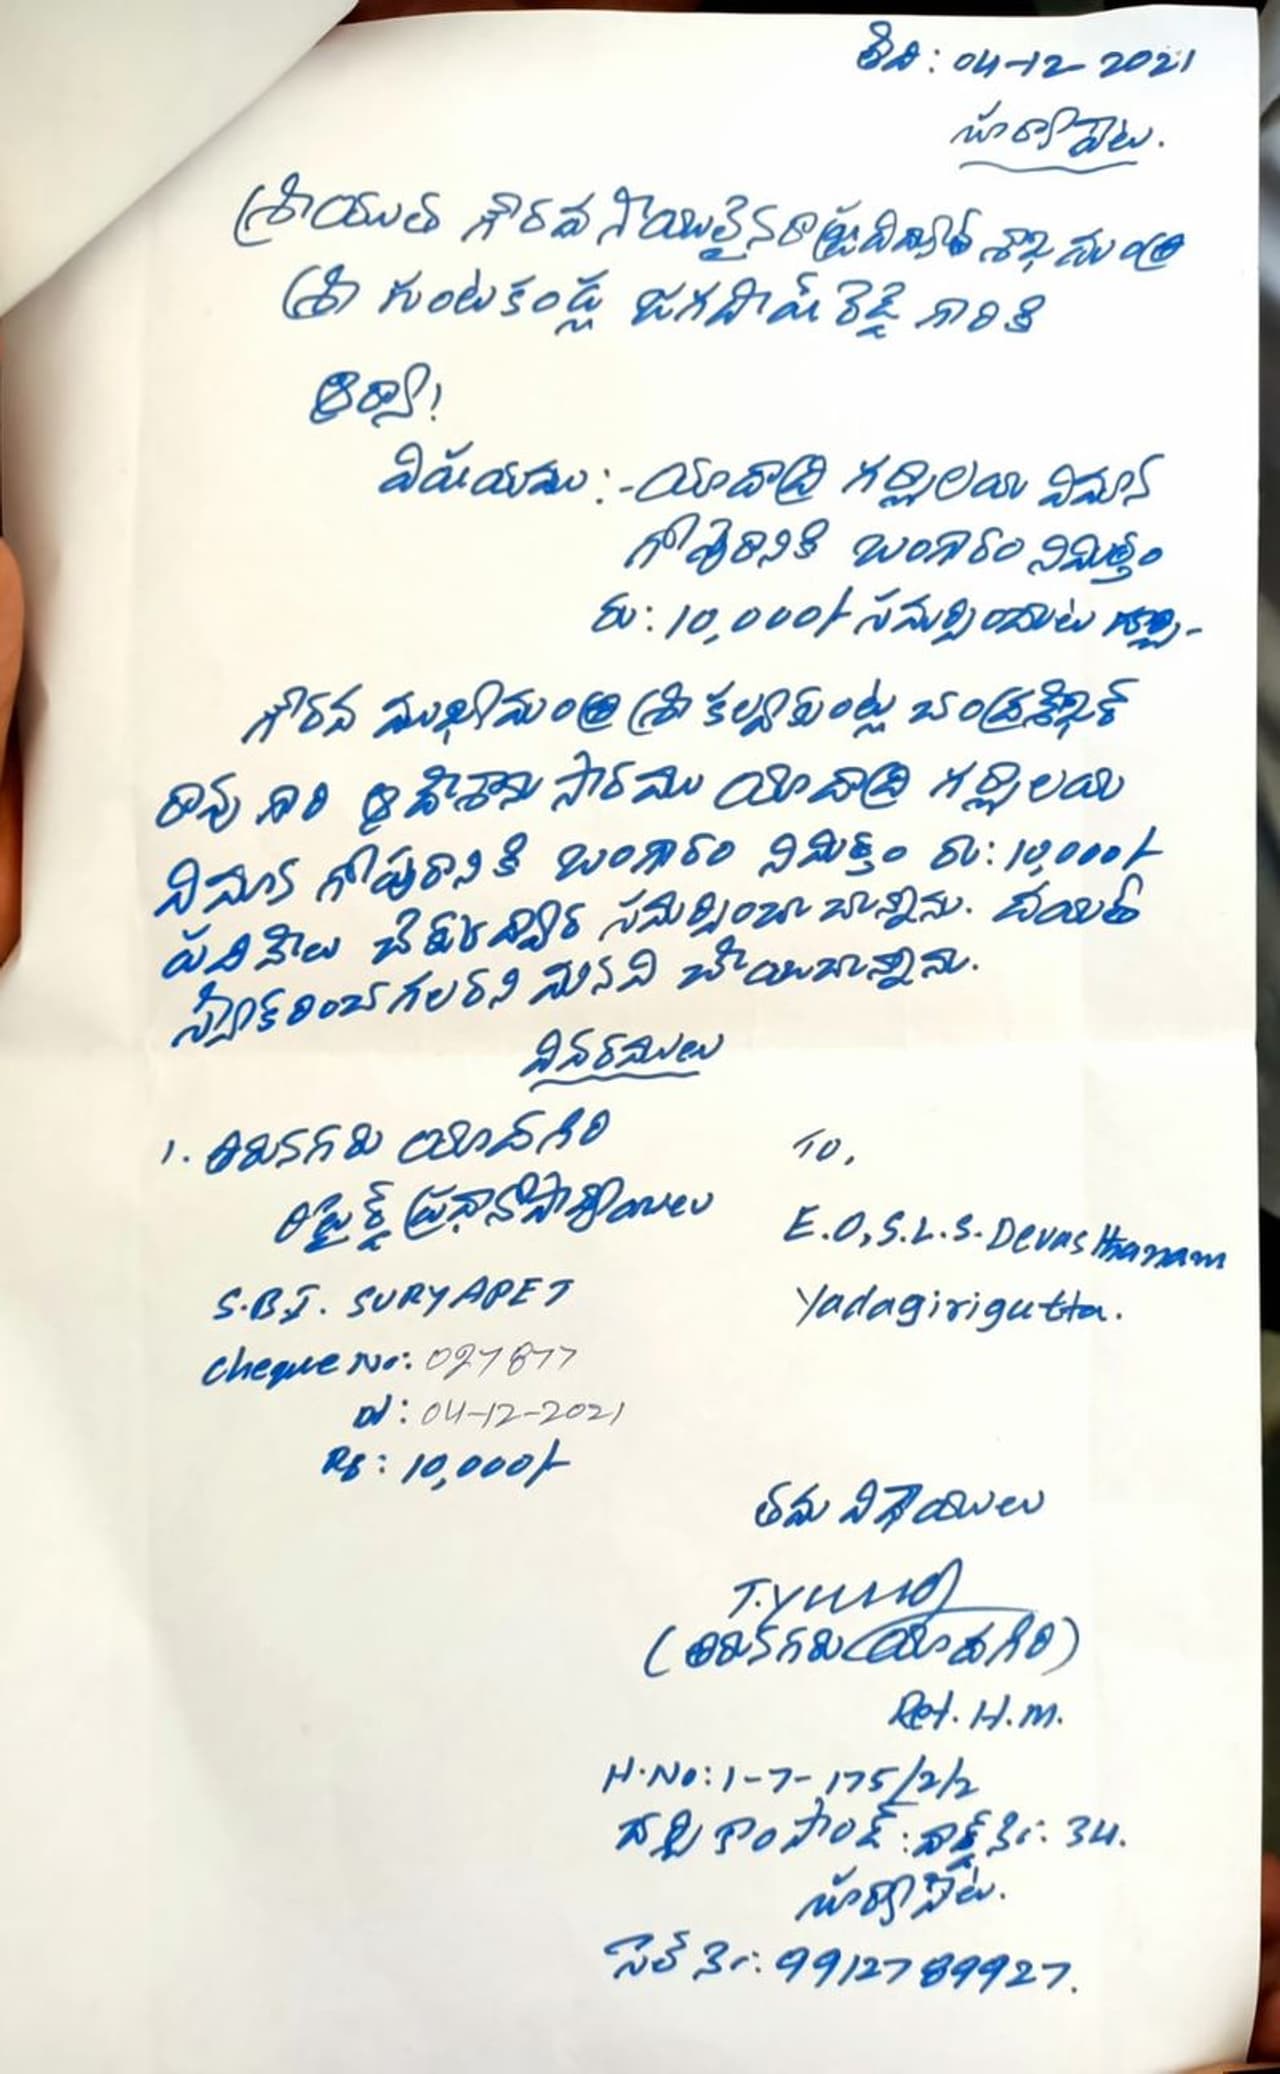 తేది: 04-12-2021
సూర్యాపేట.
శ్రీయుత గౌరవనీయులైన రాష్ట్ర విద్యుత్ శాఖ మంత్రి
శ్రీ గుంటకండ్ల జగదీష్ రెడ్డి గారికి
ఆర్యా!
విషయము:- యాదాద్రి గర్భాలయ విమాన
గోపురానికి బంగారం నిమిత్తం
రు: 10,000/- సమర్పించుట గూర్చి-
గౌరవ ముఖ్యమంత్రి శ్రీ కల్వకుంట్ల చంద్రశేఖర్
రావు గారి ఆదేశాను సారము యాదాద్రి గర్భాలయ
విమాన గోపురానికి బంగారం నిమిత్తం రు: 10,000/-
పదివేలు చెక్కు ద్వారా సమర్పించు చున్నాను. దయతో
స్వీకరించగలరని మనవి చేయుచున్నాను.
వివరములు
1. తిరునగరు యాదగిరి
రిటైర్డ్ ప్రధానోపాధ్యాయులు
S.B.I. SURYAPET
Cheque No: 027877
D/: 04-12-2021
Rs: 10,000/-
To,
E.O, S.L.S. Devasthanam
Yadagirigutta.
తమ విధేయులు
(తిరునగరు యాదగిరి)
Ret. H.M.
H.No: 1-7-175/2/2
కాంపౌండ్: వార్డ్ నెం: 34.
సూర్యాపేట.
సెల్ నెం: 9912789927.